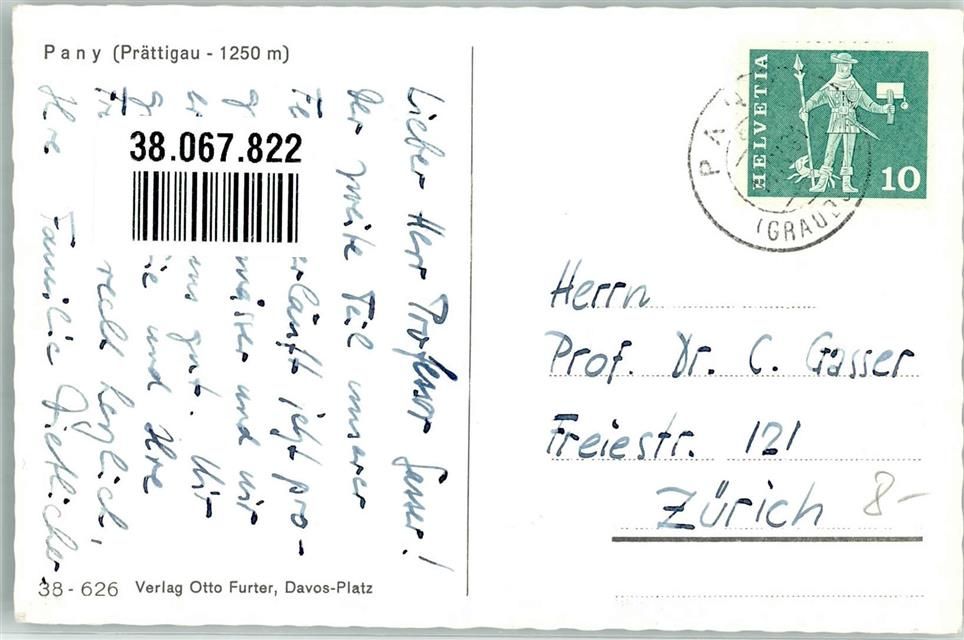 Pany (Prättigau - 1250 m)
Lieber Herr Professor Gasser!
Der zweite Teil unserer
Fe erläuft jetzt pro-
g mässer und wir
er uns gut. Wir
g ie und Ihre
Fr recht herzlich,
Ihre Familie Dietlicher
38.067.822
38-626 Verlag Otto Furter, Davos-Platz
HELVETIA
10
PANY
(GRAUB
Herrn
Prof. Dr. C. Gasser
Freiestr. 121
Zürich
8-